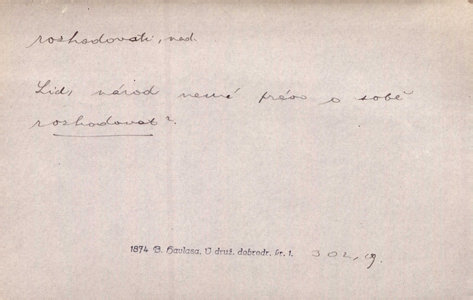 rozhodovati, ned.
Lid, národ nemá právo o sobě
rozhodovat?
1874 B. Havlasa. V druž. dobrodr. kr. 1. 302, 19.